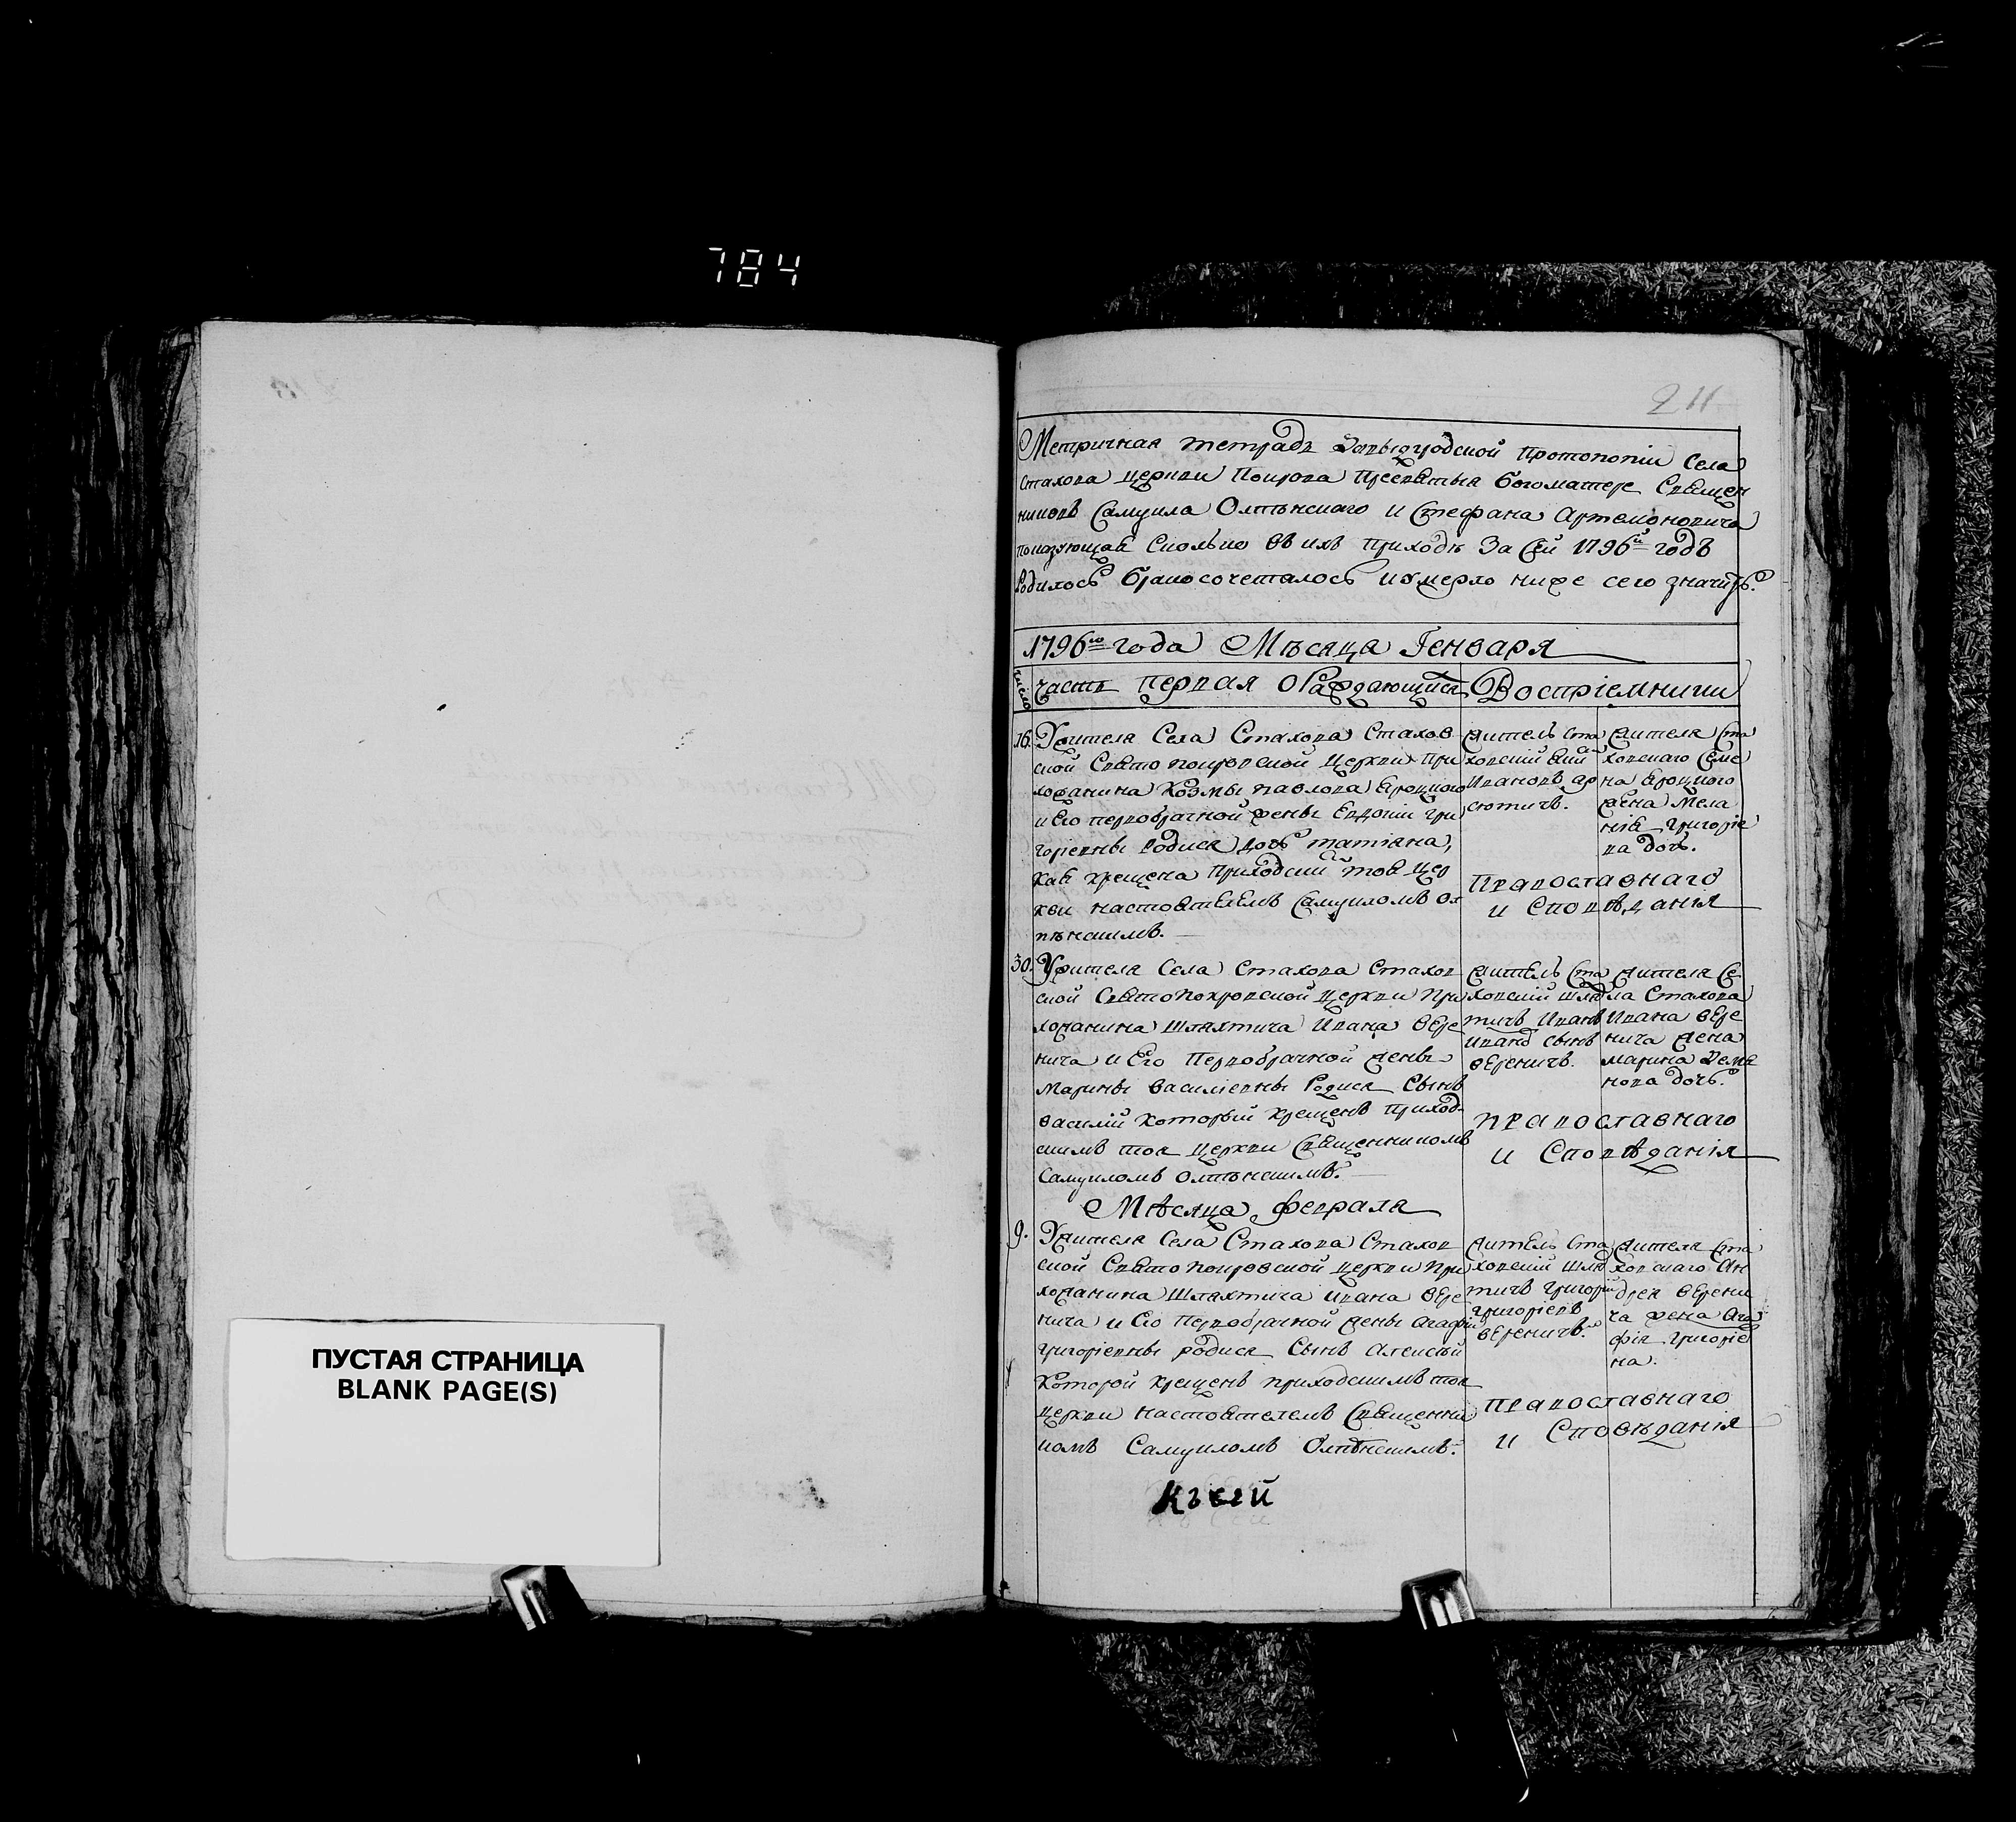 784
211
Метричная тетрадь Давыдгродской протопопіи села
Стахова церкви Покрова Пресвятыя Богоматере Священ
никовъ Самуила Олпѣнскаго и Стефана Артемоновича
показующая сколько въ ихъ приходѣ за сей 1796й годъ
родилось бракосочеталось и умерло ниже сего значитъ.
1796го года Мѣсяца Генваря
число
часть первая о Раждающихся
Воспріемники
16.
Ужителя Села Стахова Стахов
ской Свято Покровской Церкви При
хожанина Козмы Павлова
и Его первобрачной жены Евдокіи Гри
горіевны Родися дочь Татіана,
кая крещена Приходский тоя Цер
кви настоятелемъ Самуиломъ Ол
пѣнскимъ.
житель Ста
ховский
Ивановъ
жителя Ста
ховскаго Семе
на
жена Мела
нія Григоріе
ва дочь.
Православнаго
и Сповѣданія
30.
Ужителя Села Стахова Стахов
ской Свято Покровской Церкви При
хожанина Шляхтича Ивана Вере
нича и Его Первобрачной жены
Марины Василіевны Родися Сынъ
Василій который крещенъ приход
скимъ тоя Церкви Священникомъ
Самуиломъ Олпѣнскимъ.
житель Ста
ховский шлях
тичъ Иванъ
Ивановъ сынъ
Вереничъ.
жителя Се
ла Стахова
Ивана Вере
нича жена
Марина
нова дочь.
Православнаго
и Сповѣданія
Мѣсяца Февраля
9.
Ужителя Села Стахова Стахов
ской Свято Покровской Церкви При
хожанина Шляхтича Ивана Вере
нича и Его Первобрачной жены Агафіи
Григоріевны родися Сынъ Алексѣй
Которой крещенъ приходскимъ тоя
церкви настоятелемъ Священни
комъ Самуиломъ Олпѣнскимъ.
житель Ста
ховский шлях
тичъ Григорій
Григоріевъ
Вереничъ.
жителя Ста
ховскаго Ан
дрея Верени
ча жена Ага
фія Григоріе
на.
Православнаго
и Сповѣданія
Къ сей
ПУСТАЯ СТРАНИЦА
BLANK PAGE(S)